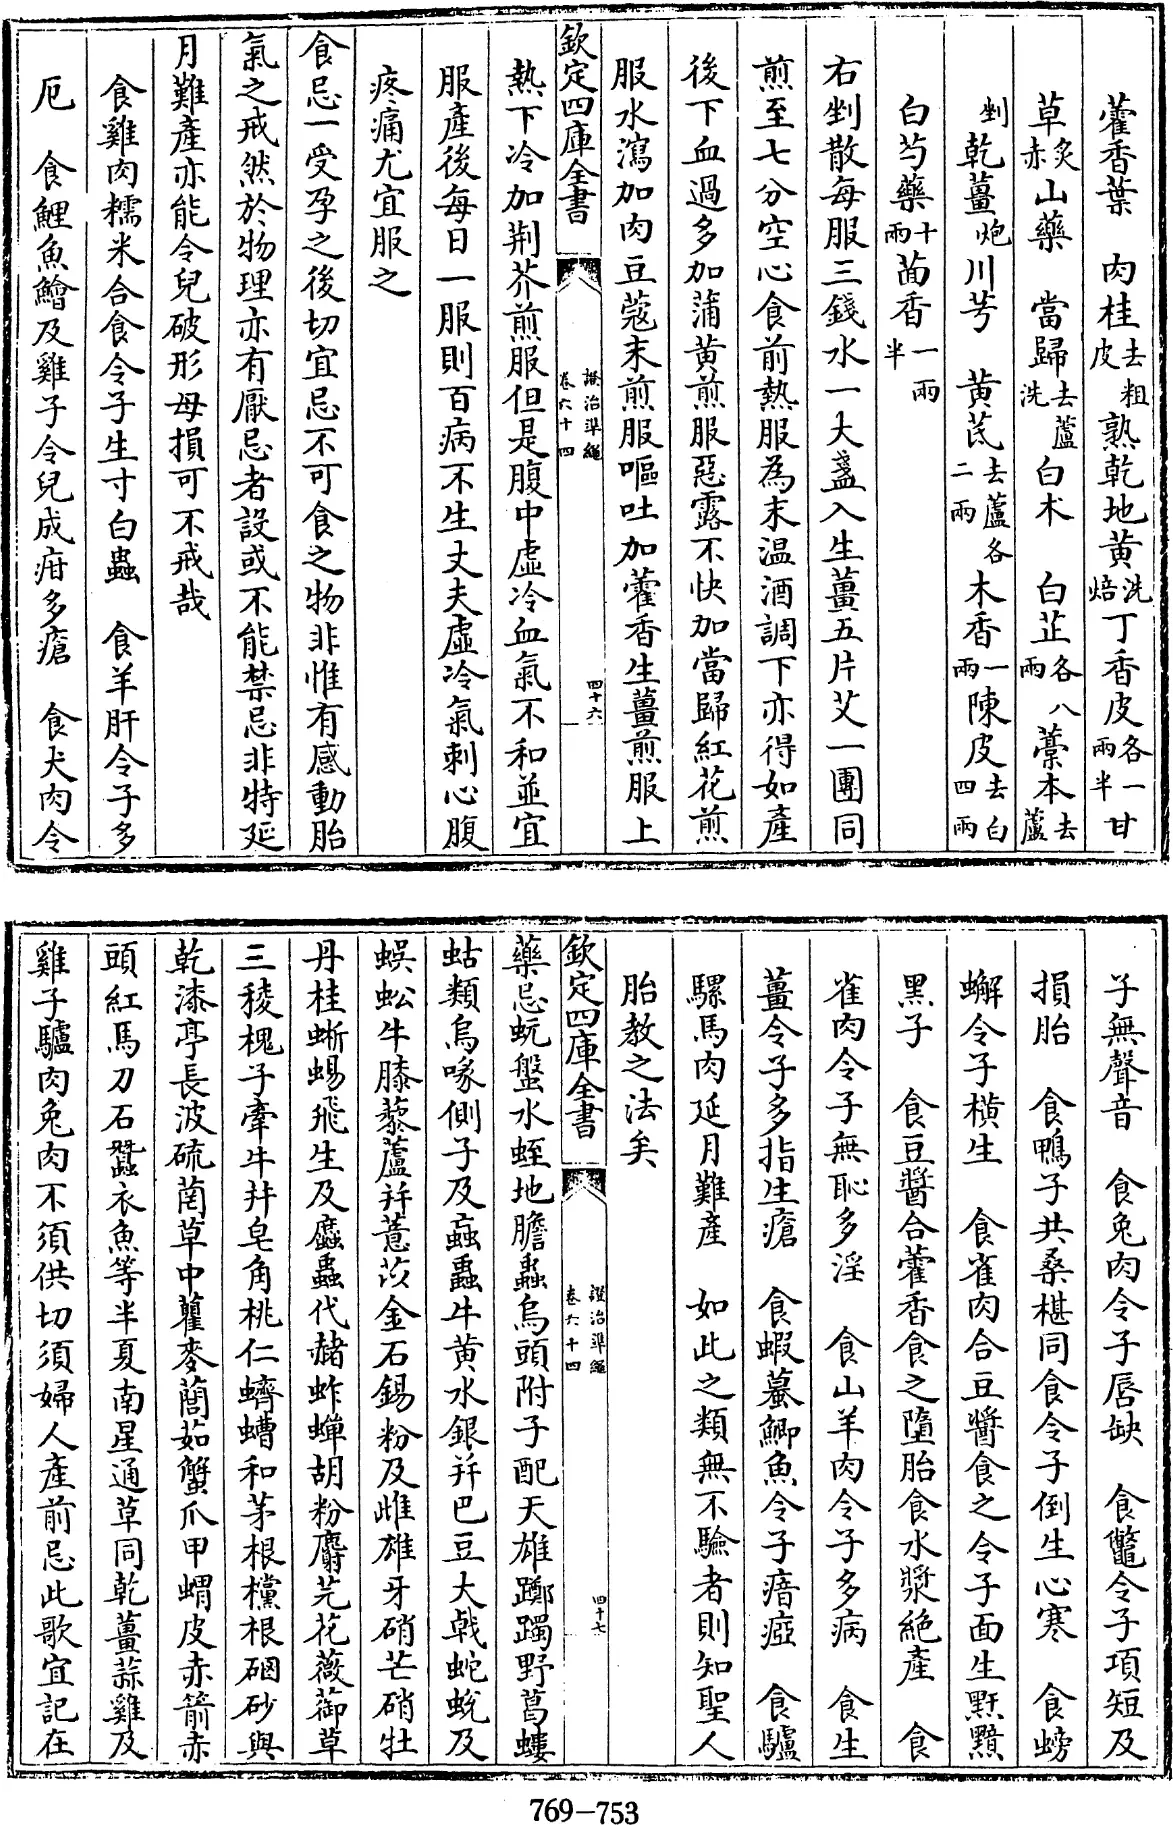 藿香葉　肉桂去粗皮熟乾地黄洗焙丁香皮各一兩半甘
草炙赤山藥　當歸去蘆洗白朮　白芷各八兩藁本去蘆
剉乾薑炮川芎　黄芪去蘆各二兩木香一兩陳皮去白四兩
白芍藥十兩茴香一兩半
右剉散每服三錢水一大盞入生薑五片艾一團同
煎至七分空心食前熱服為末温酒調下亦得如產
後下血過多加蒲黄煎服惡露不快加當歸紅花煎
服水瀉加肉豆蔻末煎服嘔吐加藿香生薑煎服上
欽定四庫全書　證治準繩卷六十四　四十六
熱下冷加荆芥煎服但是腹中虛冷血氣不和並宜
服產後每日一服則百病不生丈夫虛冷氣刺心腹
疼痛尤宜服之
食忌一受孕之後切宜忌不可食之物非惟有感動胎
氣之戒然於物理亦有厭忌者設或不能禁忌非特延
月難產亦能令兒破形母損可不戒哉
食雞肉糯米合食令子生寸白蟲　食羊肝令子多
厄　食鯉魚鱠及雞子令兒成疳多瘡　食犬肉令
子無聲音　食兔肉令子唇缺　食鼈令子項短及
損胎　食鴨子共桑椹同食令子倒生心寒　食螃
蠏令子橫生　食雀肉合豆醬食之令子面生黑㸃
黑子　食豆醬合藿香食之墮胎食水漿絶產　食
雀肉令子無恥多淫　食山羊肉令子多病　食生
薑令子多指生瘡　食蝦蟇鯽魚令子瘖瘂　食驢
騾馬肉延月難產　如此之類無不驗者則知聖人
胎教之法矣
欽定四庫全書　證治準繩卷六十四　四十七
藥忌蚖盤水蛭地膽蟲烏頭附子配天雄躑躅野葛螻
蛄類烏喙側子及蝱蟲牛黄水銀并巴豆大戟蛇蛻及
蜈蚣牛膝藜蘆并薏苡金石錫粉及雌雄牙硝芒硝牡
丹桂蜥蜴飛生及䗪蟲代赭蚱蟬胡粉麝芫花薇蓹草
三稜槐子牽牛并皂角桃仁蠐螬和茅根欓根硇砂與
乾漆亭長波硫䓘草中瞿麥䕡茹蟹爪甲蝟皮赤箭赤
頭紅馬刀石蠶衣魚等半夏南星通草同乾薑蒜雞及
雞子驢肉兔肉不須供切須婦人產前忌此歌宜記在
769-753